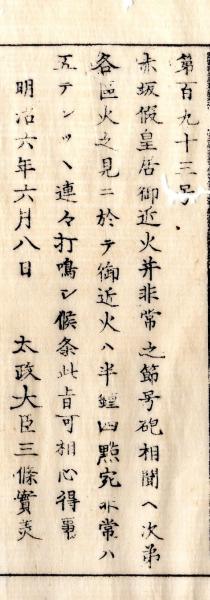 第百九十三号
赤坂假皇居御近火并非常之節号砲相聞ヘ次第
各區火之見ニ於テ御近火ハ半鐘四點宛非常ハ
五テンツヽ連々打鳴シ候条此旨可相心得事
明治六年六月八日　太政大臣三條實美